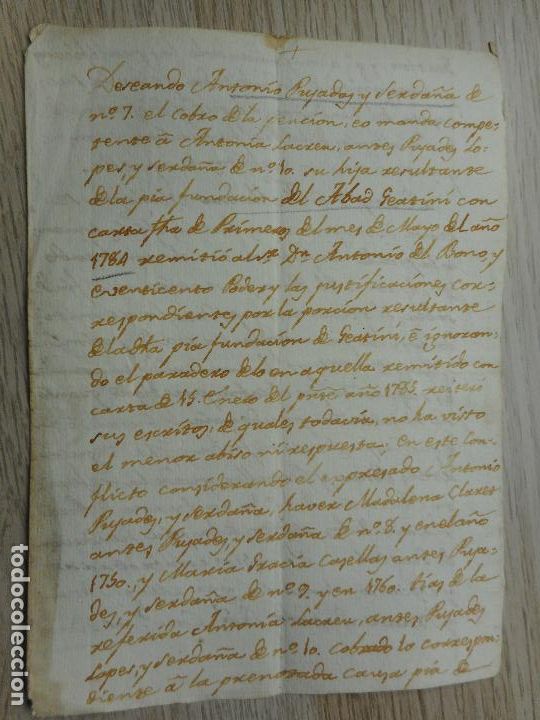 Deseando Antonio Pujades, y Serdaña de
nº. 7. el cobro de la pencion, eo manda compe-
tente â Antonia Lacreu, antes Pujades Lo-
pes, y Serdaña de nº. 10. su hija resultante
de la pia fundacion del Abad Geatini con
carta fha de Primeros del mes de Mayo del año
1784 remitió al Sr. Dn. Antonio del Bono, y
Poder y las justificaciones cor-
respondientes, por la porcion resultante
de la dha pia fundacion de Geatini, ê ignoran-
do el paradero de lo en aquella remitido con
carta de 15. Enero del pnte año 1785. reiteró
sus escritos; de quales todavia, no ha visto
el menor abiso ni respuesta; En este Con-
flicto considerando el expresado Antonio
Pujades, y Serdaña, haver Madalena Claret
antes Pujades, y Serdaña de nº. 8. y en el año
1750., y Maria Gracia Casellas antes Puja-
des, y Serdaña de nº. 9. y en 1760. tias de la
referida Antonia Lacreu, antes Pujades
Lopes, y Serdaña de nº. 10. cobrado lo correspon-
diente â la prenotada causa pia de
todocoleccion.net